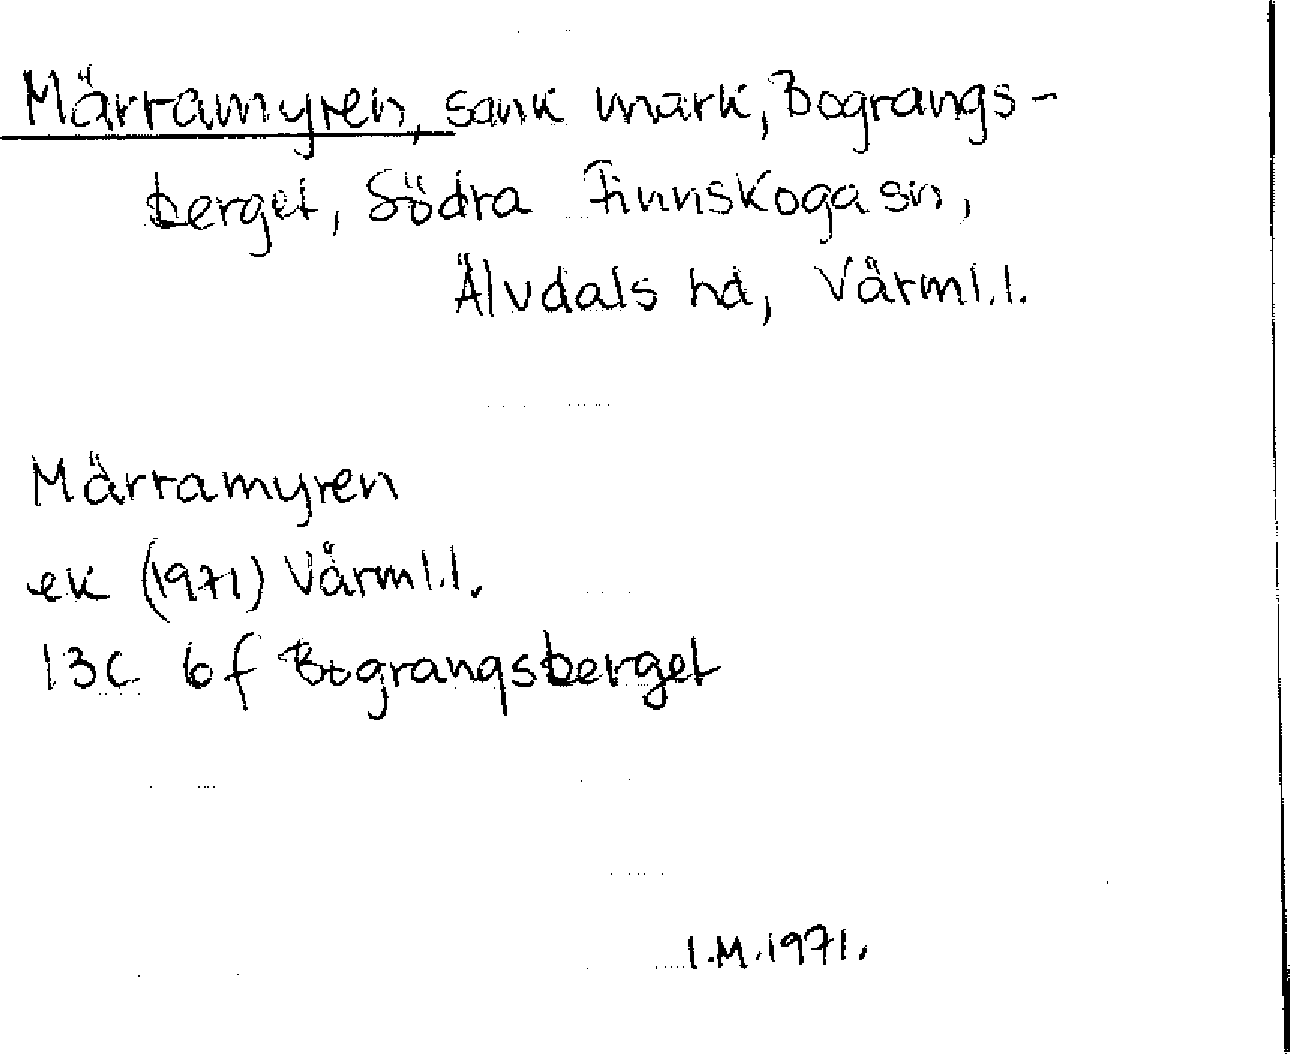 Märramyren, sank mark, Bograngs-
berget, Södra Finnskoga sn,
Älvdals hd, Värml.l.
Märramyren
ek (1971) Värml.l.
13C 6f Bograngsberget
I.M.1971.